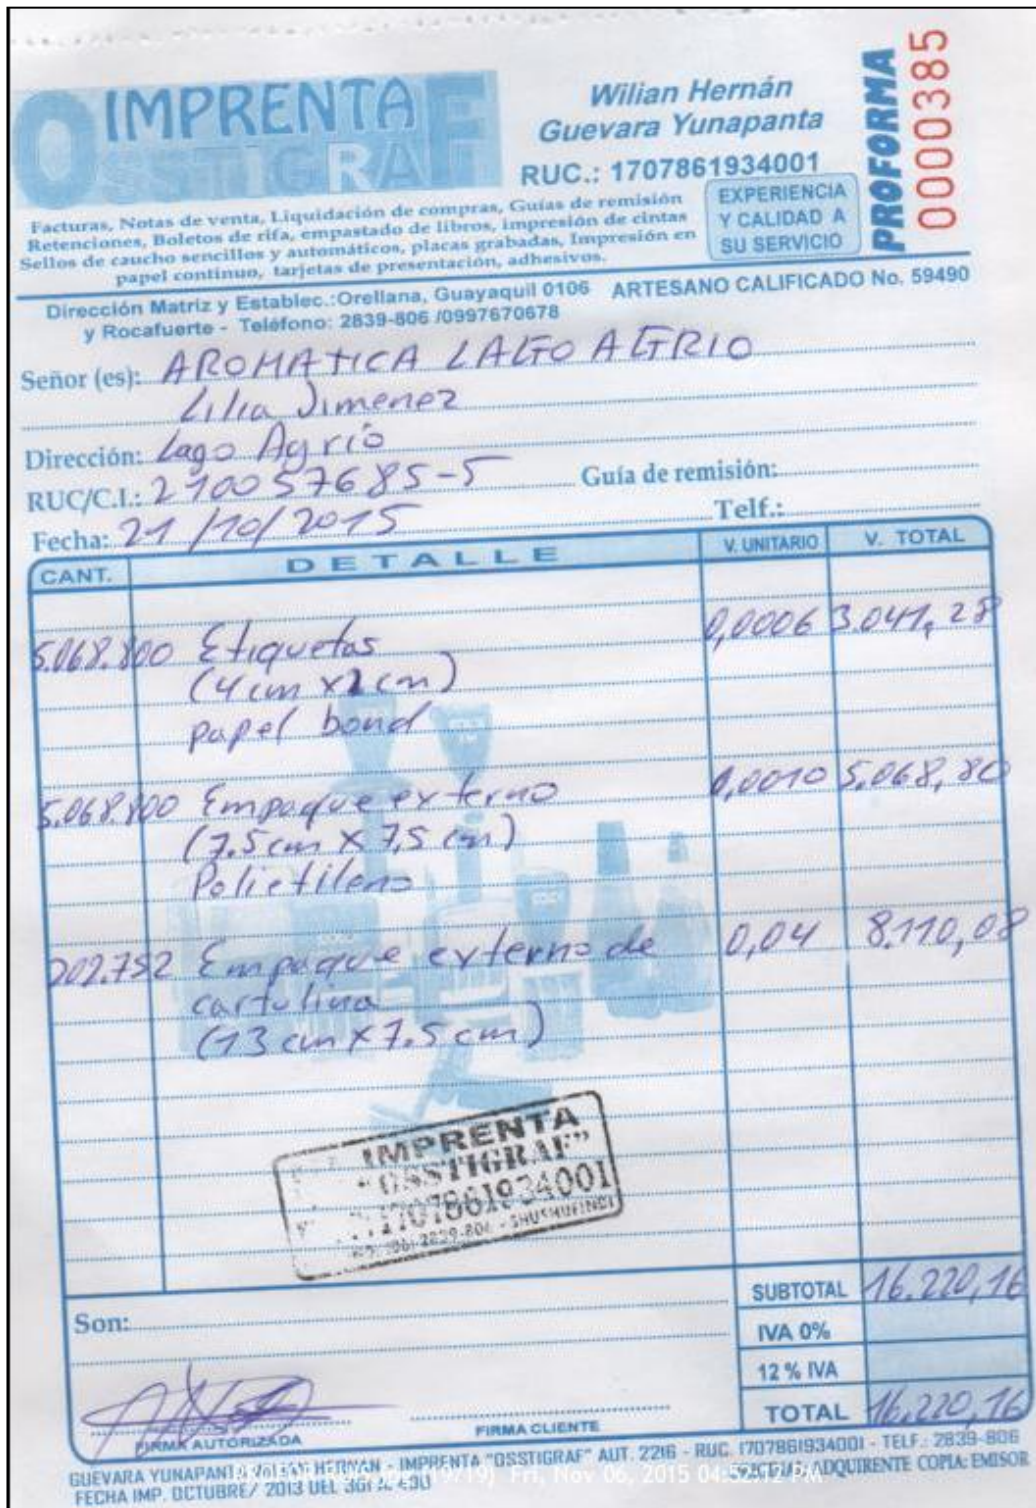 IMPRENTA
OSSTIGRAF
Wilian Hernán
Guevara Yunapanta
RUC.: 1707861934001
PROFORMA
0000385
EXPERIENCIA
Y CALIDAD A
SU SERVICIO
Facturas, Notas de venta, Liquidación de compras, Guías de remisión
Retenciones, Boletos de rifa, empastado de libros, impresión de cintas
Sellos de caucho sencillos y automáticos, placas grabadas, Impresión en
papel continuo, tarjetas de presentación, adhesivos.
Dirección Matriz y Establec.:Orellana, Guayaquil 0106 ARTESANO CALIFICADO No. 59490
y Rocafuerte - Teléfono: 2839-806 /0997670678
Señor (es): AROMATICA LAGO AGRIO
Lilia Jimenez
Dirección: Lago Agrio
RUC/C.I.: 210057685-5 Guía de remisión:
Fecha: 21/10/2015 Telf.:
CANT. DETALLE V. UNITARIO V. TOTAL
5.068.800 Etiquetas 0,0006 3.041,28
(4cm x 2cm)
papel bond
5.068.800 Empaque externo 0,0010 5.068,80
(7.5cm x 7,5 cm)
Polietileno
202.752 Empaque externo de 0,04 8.110,08
cartulina
(13 cm x 7.5 cm)
IMPRENTA
"OSSTIGRAF"
1707861934001
2839-806 - SHUSHUFINDI
SUBTOTAL 16.220,16
Son:
IVA 0%
12 % IVA
TOTAL 16.220,16
FIRMA AUTORIZADA FIRMA CLIENTE
GUEVARA YUNAPANTA HERNAN - IMPRENTA "OSSTIGRAF" AUT. 2216 - RUC. 1707861934001 - TELF.: 2839-806
FECHA IMP. OCTUBRE/ 2013 DEL ADQUIRENTE COPIA: EMISOR
(19/19) Fri, Nov 06, 2015 04:52:12 PM